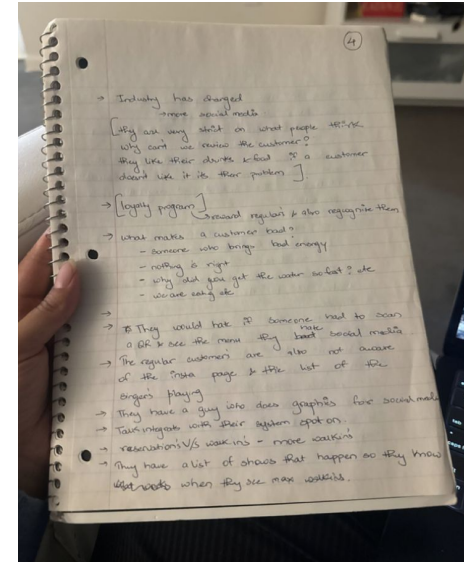 4
→ Industry has changed
→ more social media
[they are very strict on what people think
why can't we review the customer?
they like their drinks & food if a customer
doesn't like it its their problem]
→ [loyalty program]
→ reward regulars & also recognise them
→ what makes a customer bad?
- someone who brings bad energy
- nothing is right
- why did you get the water so fast? etc
- we are etc
→
→ They would hate if someone had to scan
a QR & see the menu they hate social media
→ The regular customers are also not aware
of the insta page & the list of the
singers playing
→ They have a guy who does graphics for social media
→ integrates with their system spot on.
→ reservations V/S walk-in's - more walkin's
→ They have a list of shows that happen so they know
when they see max walkins.